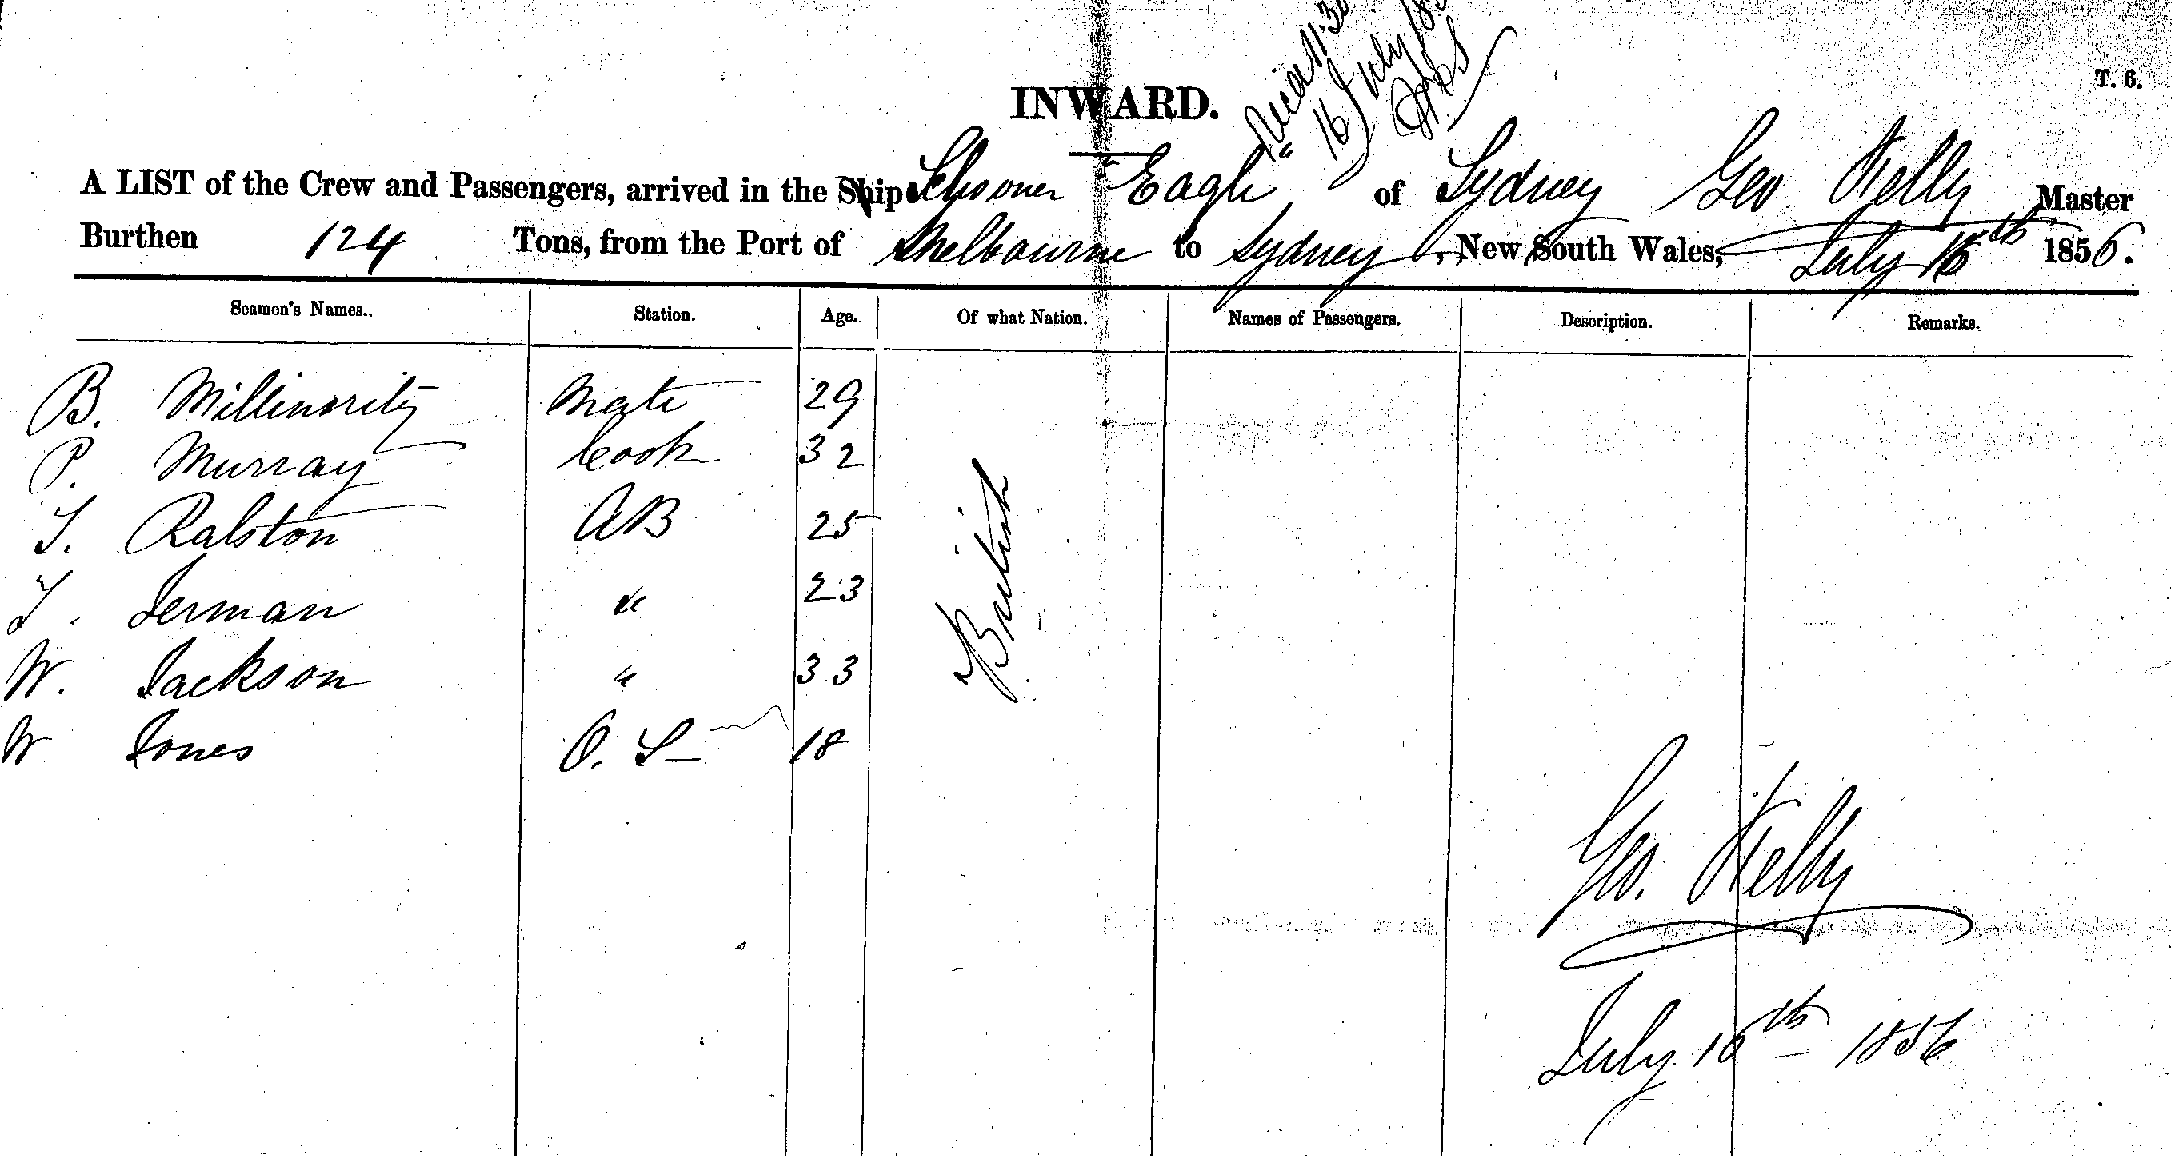 T. 6.
INWARD.
16 July 185
A LIST of the Crew and Passengers, arrived in the Ship Schooner "Eagle" of Sydney Geo Kelly Master
Burthen 124 Tons, from the Port of Melbourne to Sydney, New South Wales, July 16th 1856.
Seamen's Names. Station. Age. Of what Nation. Names of Passengers. Description. Remarks.
B. Mate 29
P. Murray Cook 32
T. Ralston AB 25
T. Jerman " 23
W. Jackson " 33
W Jones O. S 18
British
Geo. Kelly
July 16th 1856